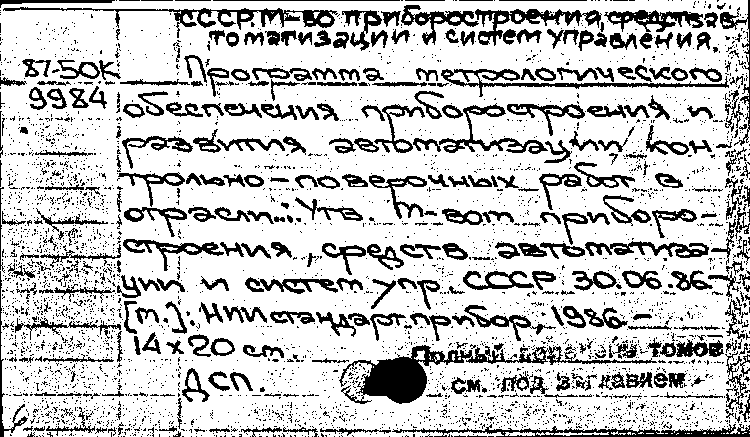 СССР. М-во приборостроения, средств ав-
томатизации и систем управления.
87-50К
9984
Программа метрологического
обеспечения приборостроения и
развития автоматизации кон-
трольно-поверочных работ в
отрасли...: Утв. М-вом приборо-
строения, средств автоматиза-
ции и систем упр. СССР 30.06.86.-
[М.]: НИИстандартприбор, 1986.-
14 х 20 см.
Полный перечень томов
ДСП.
см. под заглавием
6